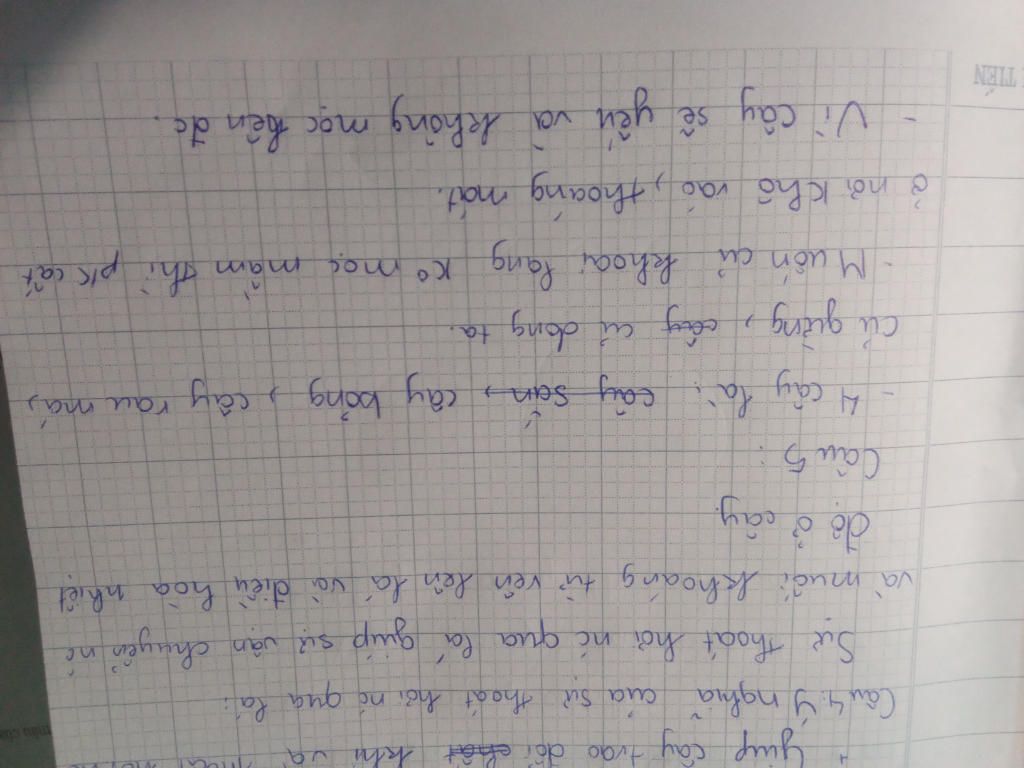 + Giúp cây trao đổi chất khí và
Câu 4. Ý nghĩa của sự thoát hơi nc qua lá:
Sự thoát hơi nc qua lá giúp sự vận chuyển nc
và muối khoáng từ vên lên lá và điều hòa nhiệt
độ ở cây.
Câu 5:
- 4 cây là: cây sắn, cây bỏng, cây rau má,
củ gừng, cây củ dong ta.
- Muốn củ khoai lang ko mọc mầm thì pk cất
ở nơi khô ráo, thoáng mát.
- Vì cây sẽ yếu và không mọc lên đc.
TIẾN